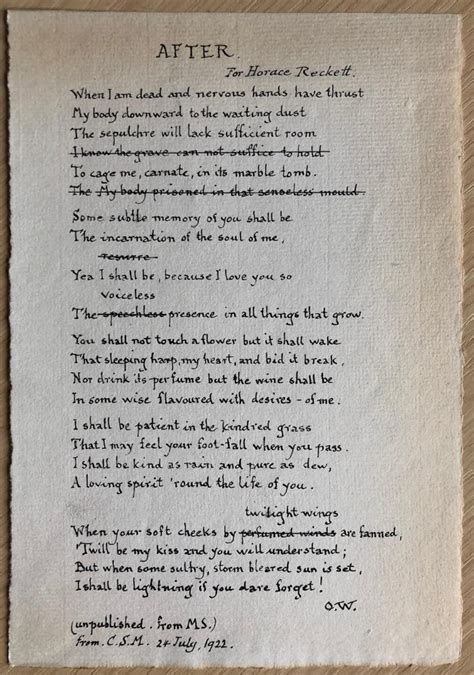 AFTER.
For Horace Reckett.
When I am dead and nervous hands have thrust
My body downward to the waiting dust
The sepulchre will lack sufficient room
I know the grave can not suffice to hold
To cage me, carnate, in its marble tomb.
The My body prisoned in that senseless mould.
Some subtle memory of you shall be
The incarnation of the soul of me,
resurre
Yea I shall be, because I love you so
voiceless
The speechless presence in all things that grow.
You shall not touch a flower but it shall wake
That sleeping harp, my heart, and bid it break,
Nor drink its perfume but the wine shall be
In some wise flavoured with desires - of me.
I shall be patient in the kindred grass
That I may feel your foot-fall when you pass.
I shall be kind as rain and pure as dew,
A loving spirit 'round the life of you.
twilight wings
When your soft cheeks by perfumed winds are fanned,
'Twill be my kiss and you will understand;
But when some sultry, storm bleared sun is set,
I shall be lightning if you dare forget!
O.W.
(unpublished. from MS.)
from C.S.M. 24 July, 1922.